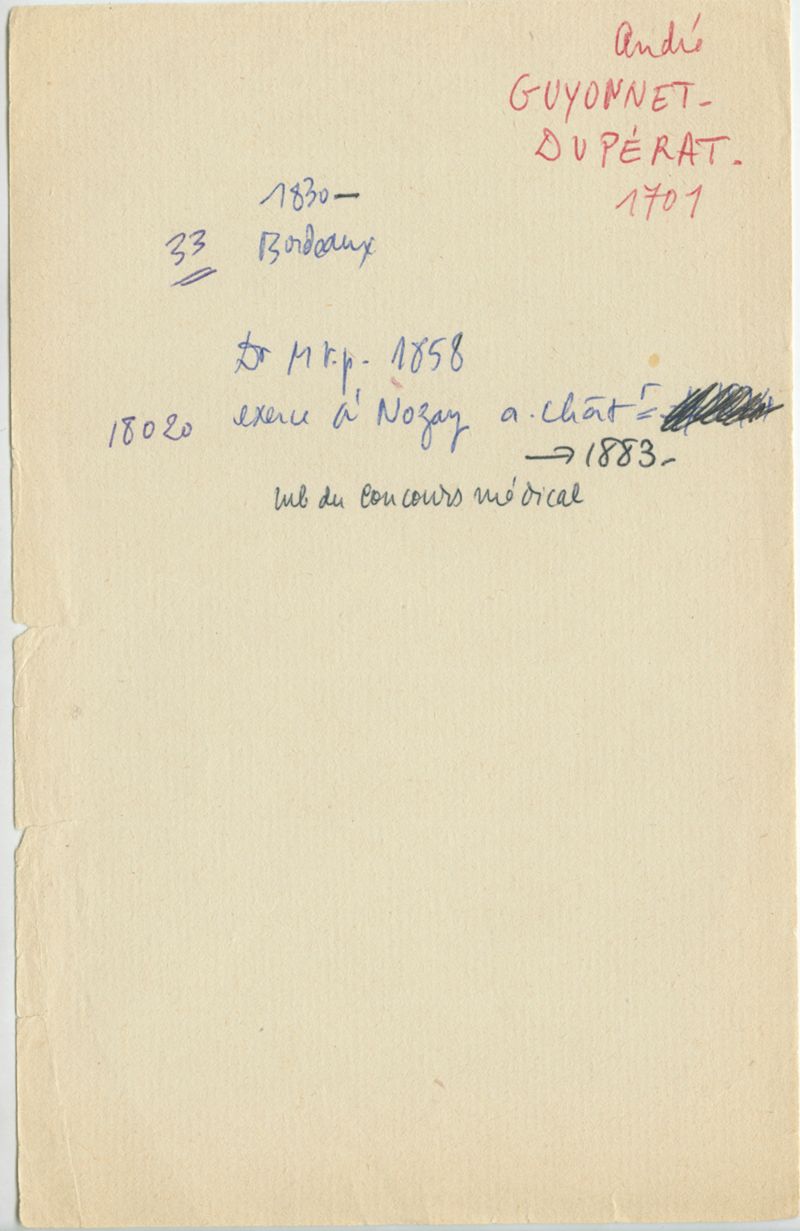 André
GUYONNET-
DUPÉRAT.
1701
1830—
33 Bordeaux
Dr M t.p. 1858
18020 exerce à Nozay a. Chât
→ 1883-
mb du Concours médical